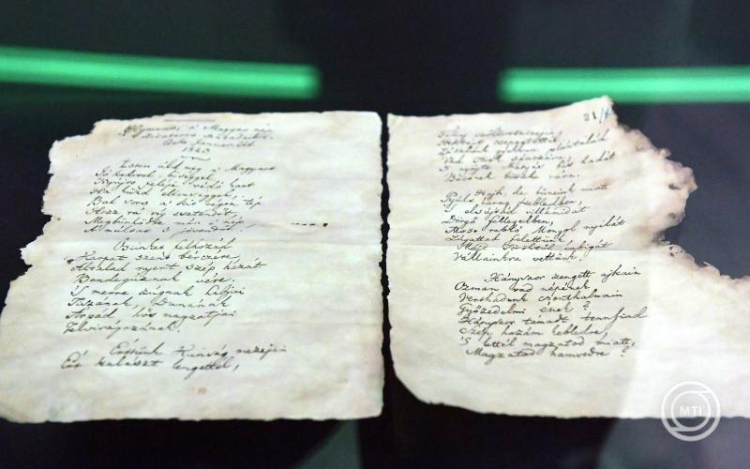 Hymnus, a' Magyar nép
zivataros századaiból
Cseke Januar 22d
1823
Isten áldd meg a' Magyart
Jó kedvvel, bőséggel,
Nyújts feléje védő kart
Ha küzd ellenséggel;
Bal sors a' kit régen tép
Hozz rá víg esztendőt,
Megbűnhődte már e' nép
A' múltat 's jövendőt!
Őseinket felhozád
Kárpát szent bérczére,
Általad nyert szép hazát
Bendegúznak vére
'S merre zúgnak habjai
Tiszának, Dunának
Árpád hős magzatjai
Felvirágozának.
Értünk Kunság mezejin
Ért kalászt lengettél,
21/
Tokaj szőlővesszejin
Nektárt csepegtettél.
Zászlónk gyakran plántálád
Vad török sánczára,
'S nyögte Mátyás bús hadát
Bécsnek büszke vára.
Hajh, de bűneink miatt
Gyúlt harag kebledben,
'S elsújtád villámidat
Dörgő fellegedben,
Most rabló Mongol nyilát
Zúgattad felettünk,
Majd Töröktől rabigát
Vállainkra vettünk.
Hányszor zengett ajkain
Ozman vad népének
Vert hadunk csonthalmain
Győzedelmi ének?
Hányszor támadt tennfiad
Szép hazám kebledre,
'S lettél magzatod miatt,
Magzatod hamvedre?
MTI